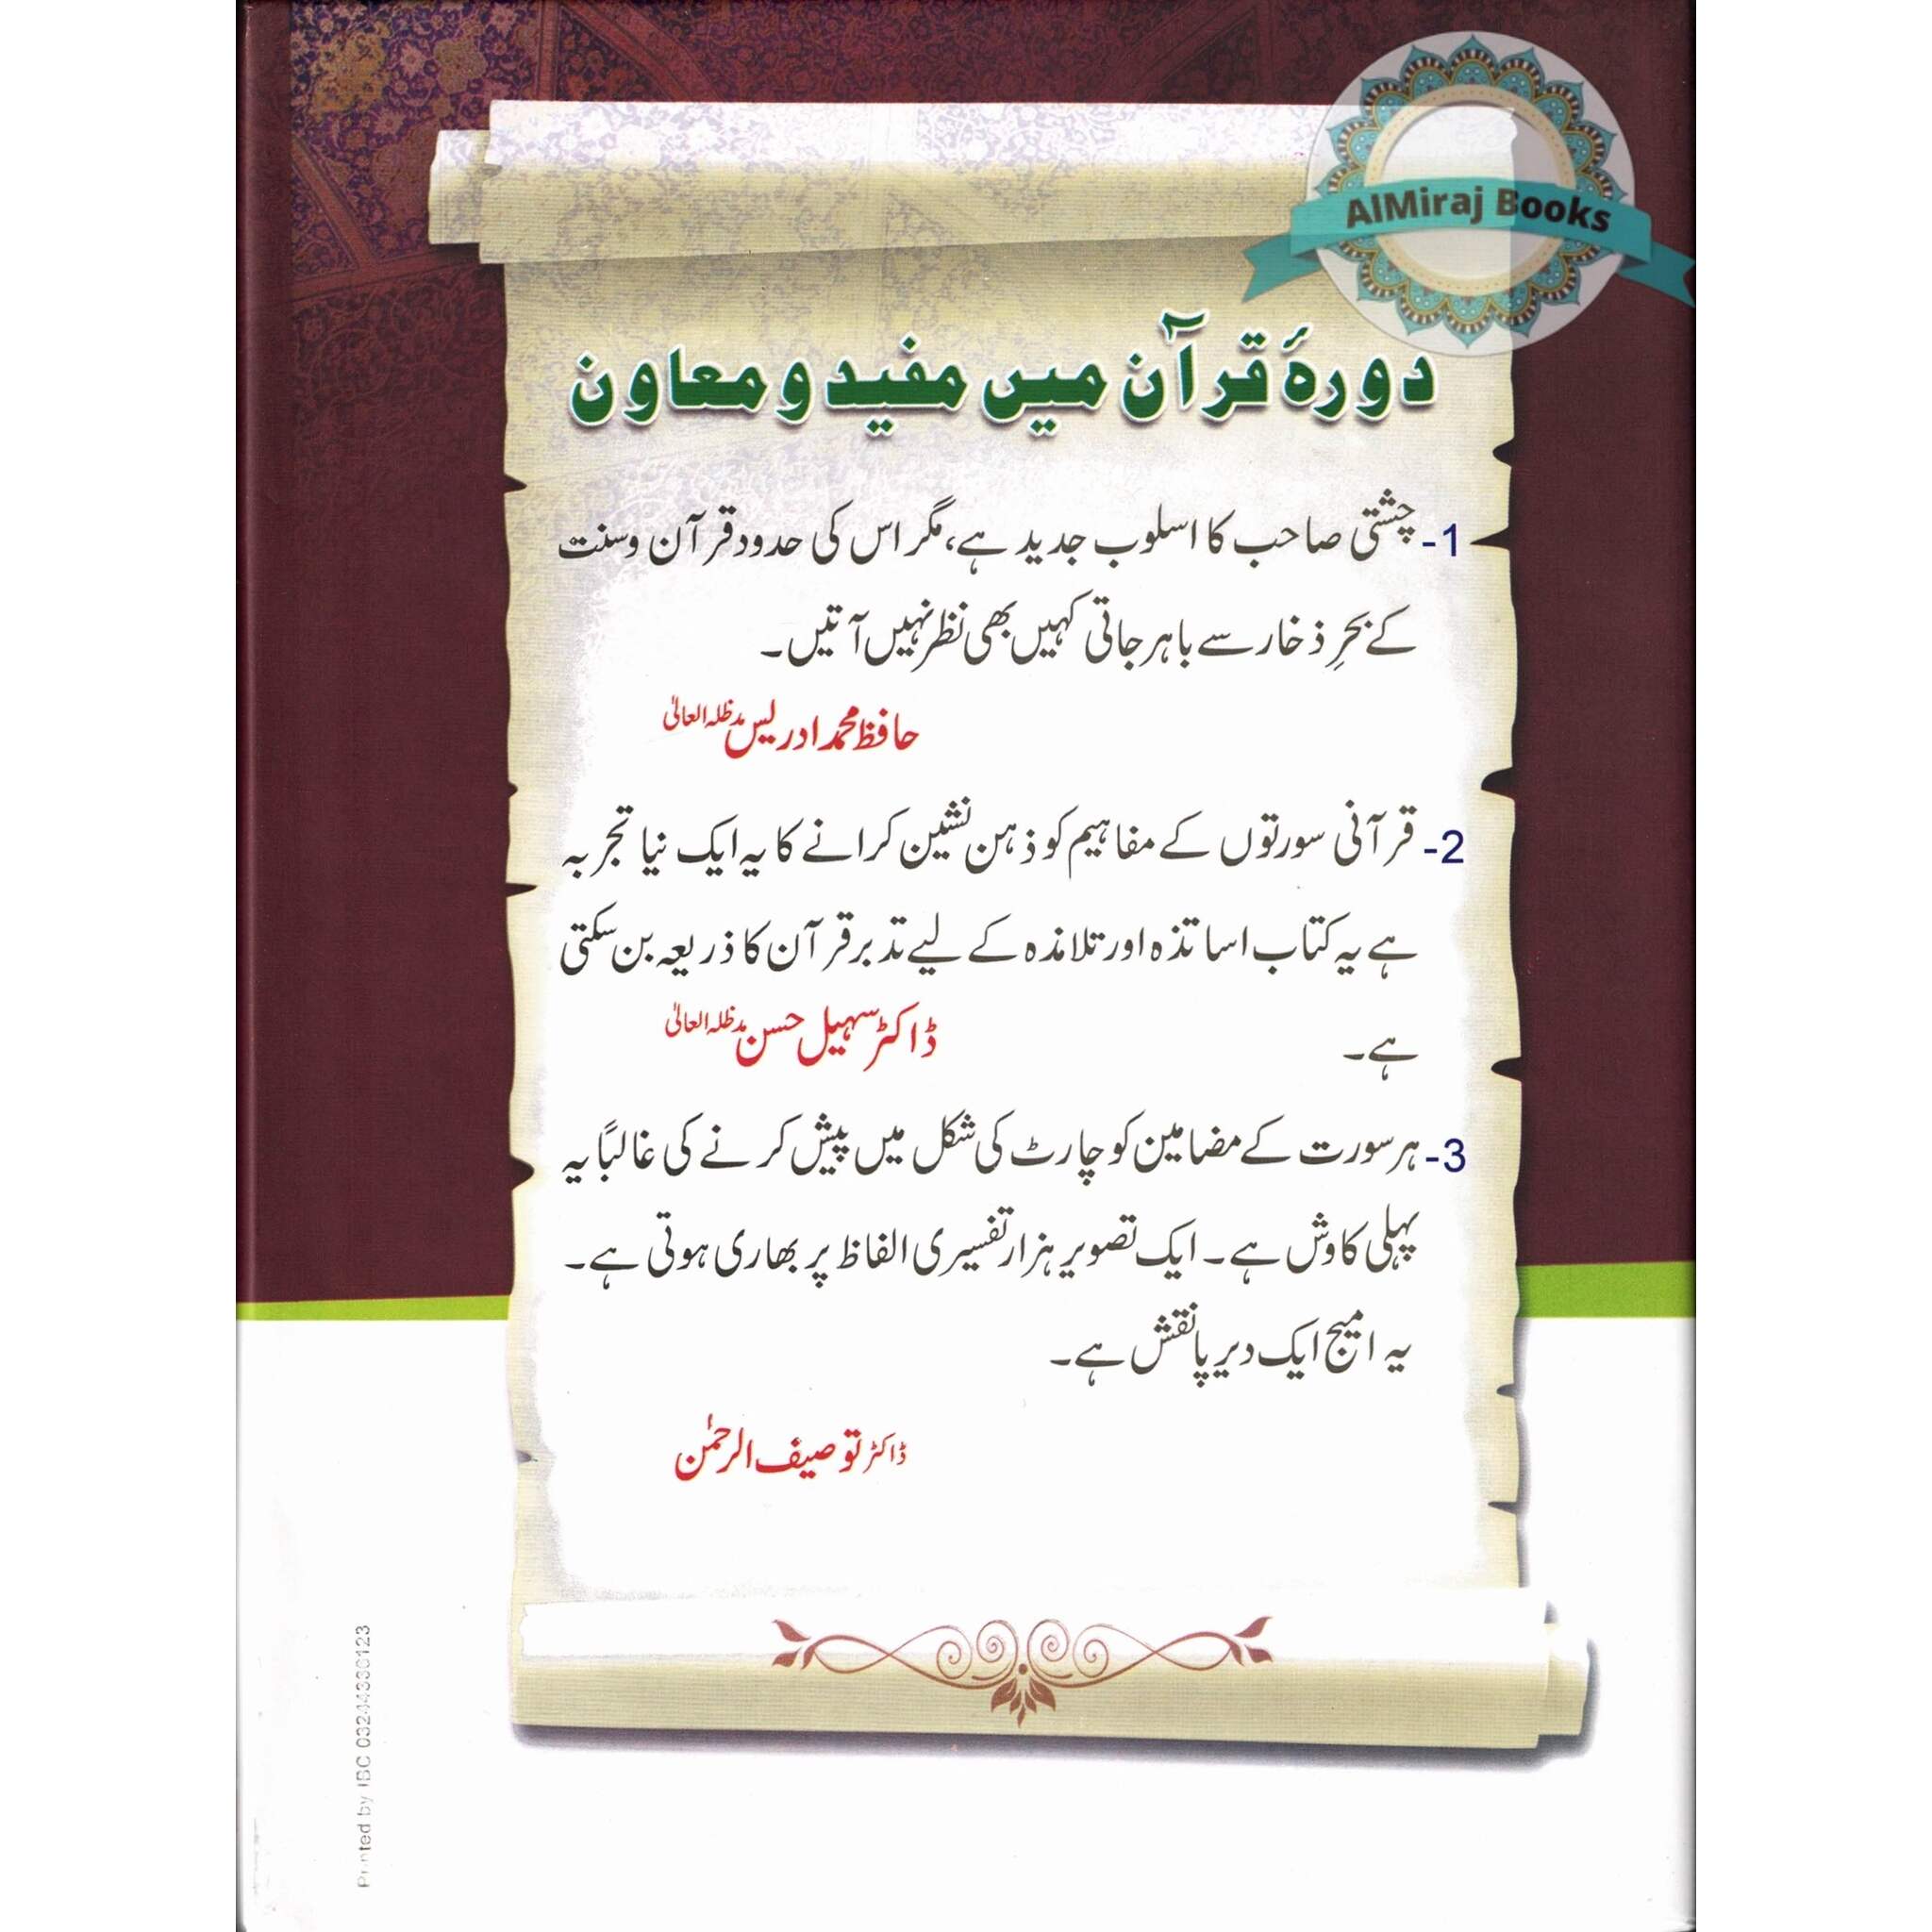 AlMiraj Books
دورۂ قرآن میں مفید و معاون
1- چشتی صاحب کا اسلوب جدید ہے، مگر اس کی حدود قرآن وسنت
کے بحرِ ذخار سے باہر جاتی کہیں بھی نظر نہیں آتیں۔
حافظ محمد ادریس مدظلہ العالیٰ
2- قرآنی سورتوں کے مفاہیم کو ذہن نشین کرانے کا یہ ایک نیا تجربہ
ہے یہ کتاب اساتذہ اور تلامذہ کے لیے تدبر قرآن کا ذریعہ بن سکتی
ہے۔
ڈاکٹر سہیل حسن مدظلہ العالیٰ
3- ہر سورت کے مضامین کو چارٹ کی شکل میں پیش کرنے کی غالباً یہ
پہلی کاوش ہے۔ ایک تصویر ہزار تفسیری الفاظ پر بھاری ہوتی ہے۔
یہ امیج ایک دیرپا نقش ہے۔
ڈاکٹر توصیف الرحمٰن
Printed by ISC